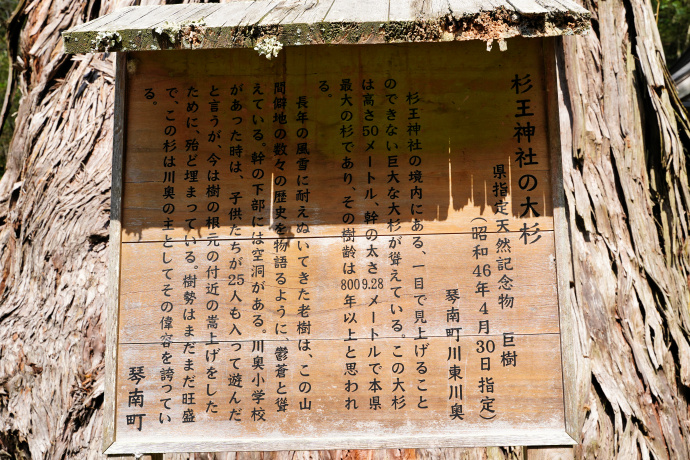 杉王神社の大杉
県指定天然記念物　巨樹
（昭和46年4月30日指定）
琴南町川東川奥
杉王神社の境内にある、一目で見上げること
のできない巨大な大杉が聳えている。この大杉
は高さ50メートル、幹の太さ9.28メートルで本県
最大の杉であり、その樹齢は800年以上と思われ
る。
長年の風雪に耐えぬいてきた老樹は、この山
間僻地の数々の歴史を物語るように、鬱蒼と聳
えている。幹の下部には空洞がある。川奥小学校
があった時は、子供たちが25人も入って遊んだ
と言うが、今は樹の根元の付近の嵩上げをした
ために、殆ど埋まっている。樹勢はまだまだ旺盛
で、この杉は川奥の主としてその偉容を誇ってい
る。
琴南町